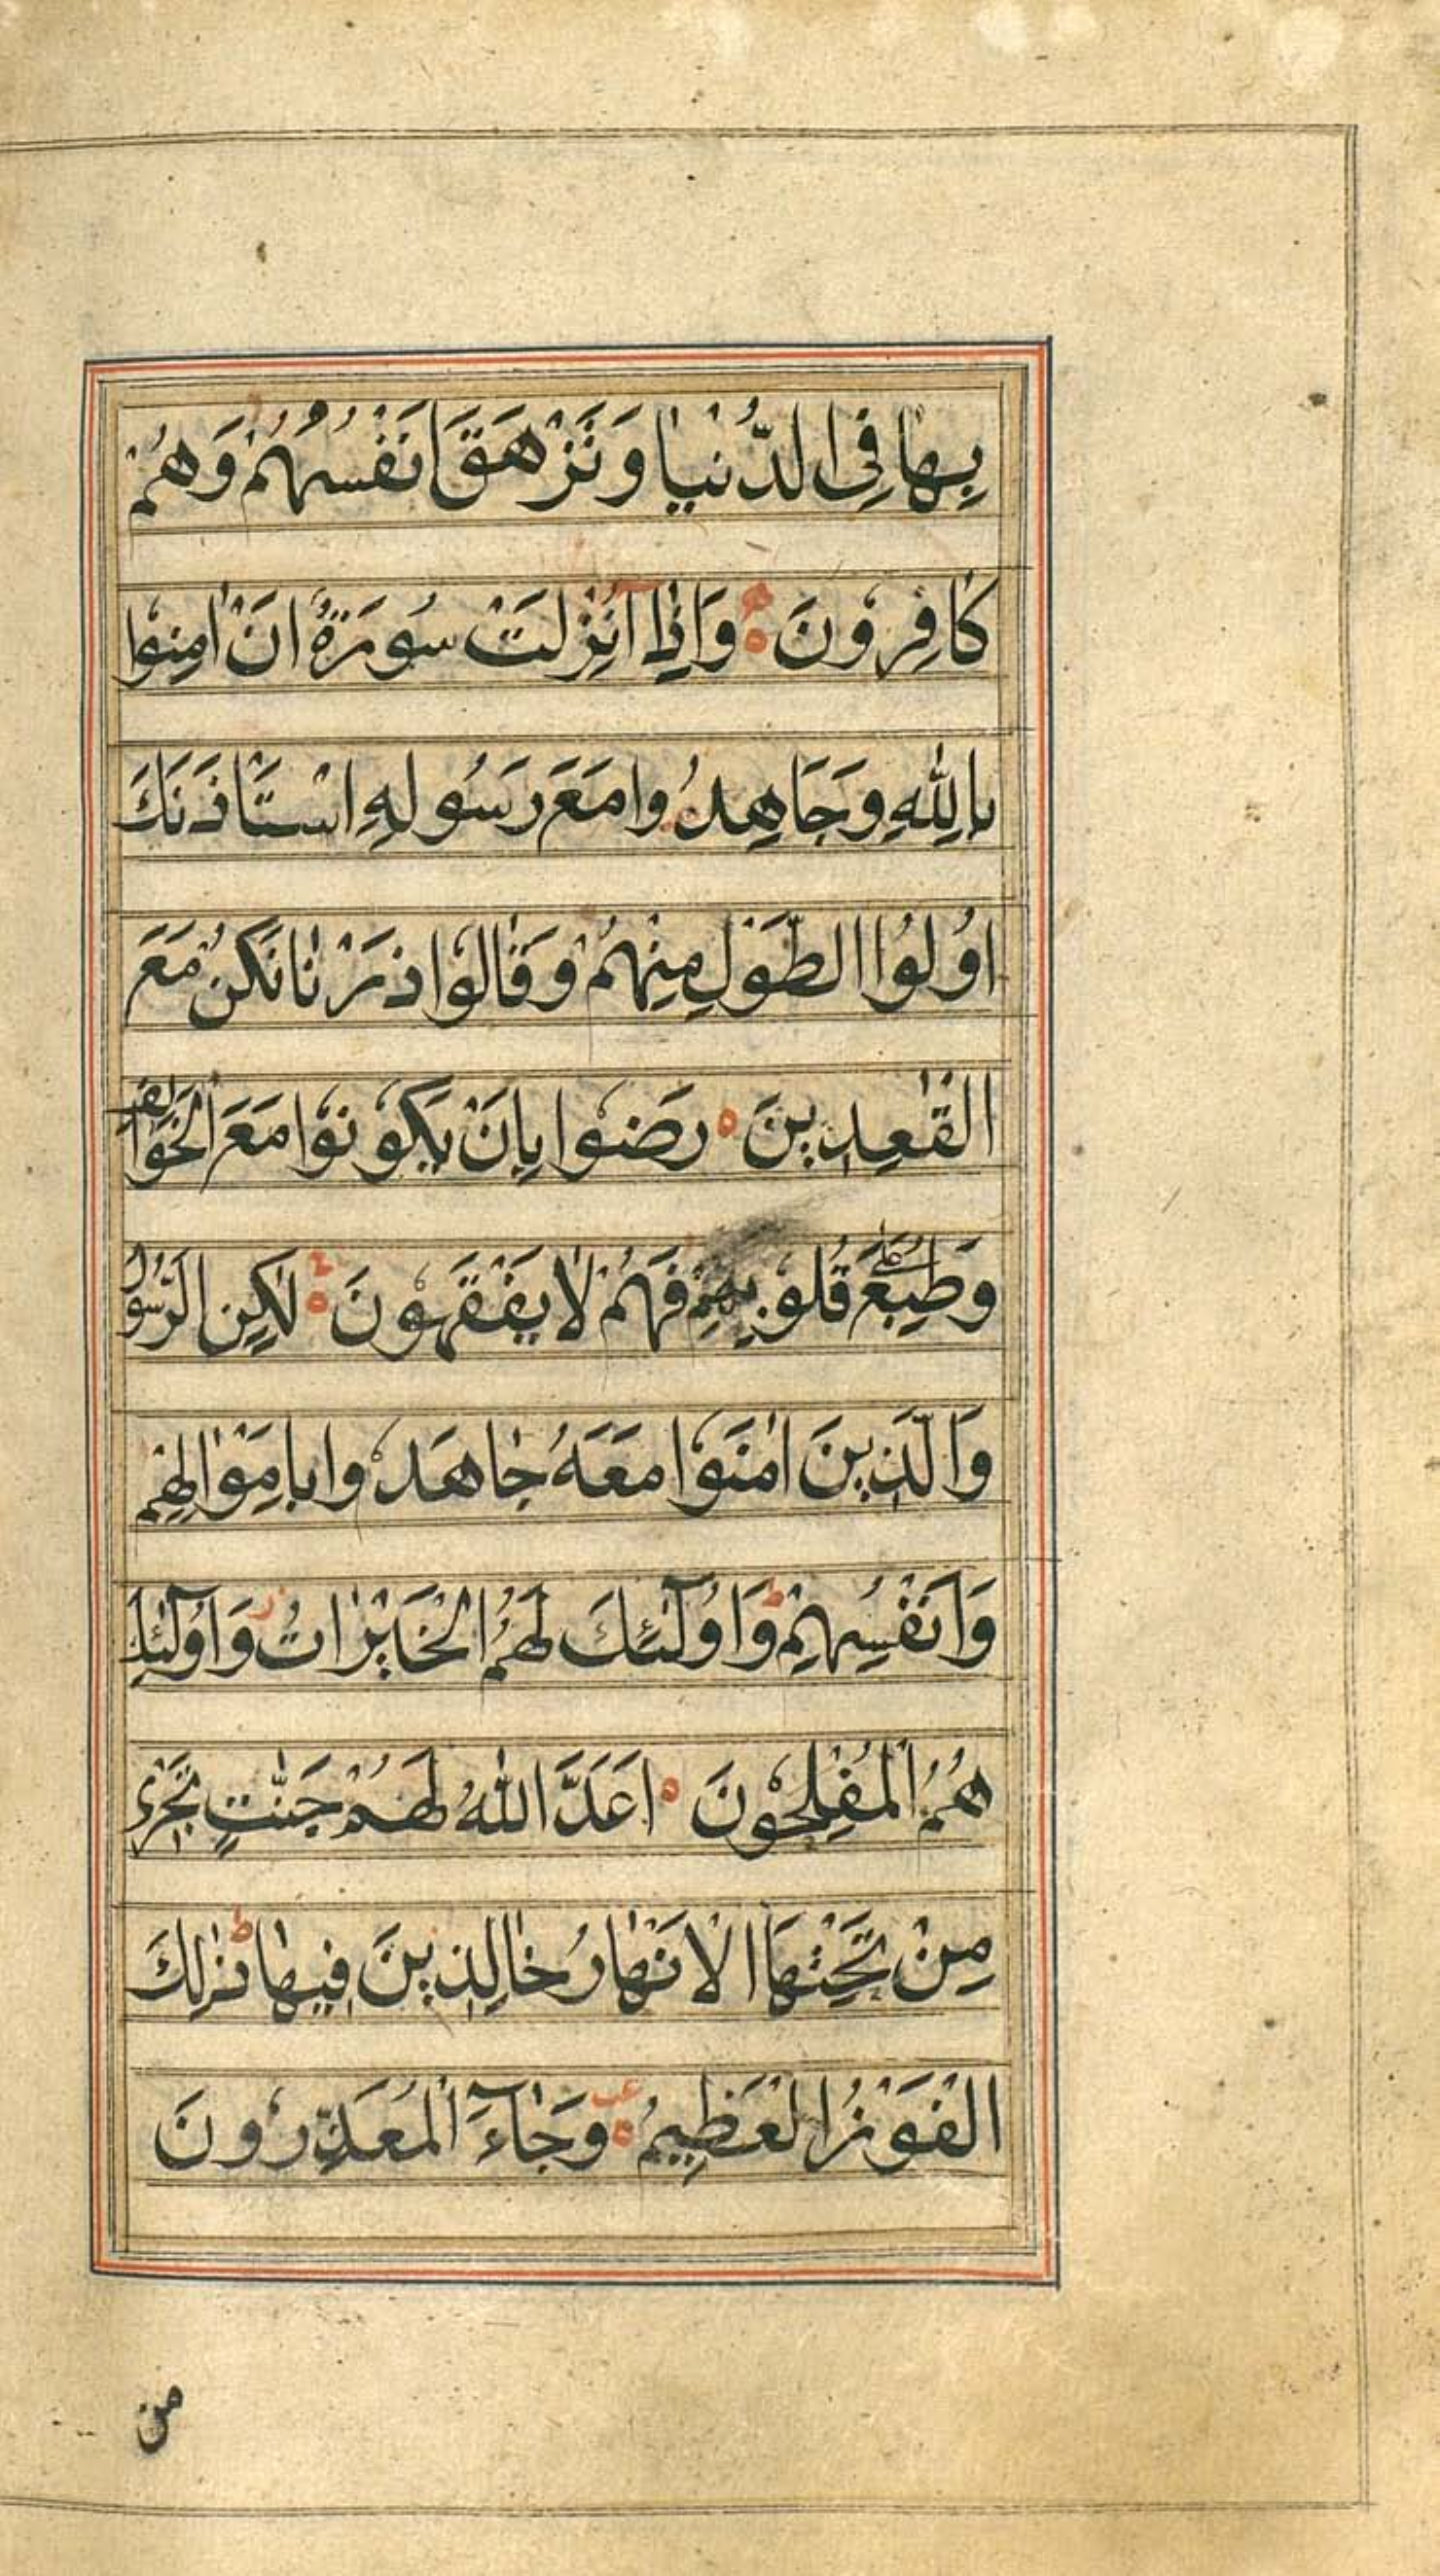 بِهَا فِي الدُّنْيَا وَتَزْهَقَ اَنْفُسُهُمْ وَهُمْ
كَافِرُونَ ۝ وَاِذَا اُنْزِلَتْ سُورَةٌ اَنْ اٰمِنُوا
بِاللّٰهِ وَجَاهِدُوا مَعَ رَسُولِهِ اسْتَاْذَنَكَ
اُولُوا الطَّوْلِ مِنْهُمْ وَقَالُوا ذَرْنَا نَكُنْ مَعَ
الْقٰعِدِينَ ۝ رَضُوا بِاَنْ يَكُونُوا مَعَ الْخَوَالِفِ
وَطُبِعَ عَلٰى قُلُوبِهِمْ فَهُمْ لَا يَفْقَهُونَ ۝ لٰكِنِ الرَّسُولُ
وَالَّذِينَ اٰمَنُوا مَعَهُ جَاهَدُوا بِاَمْوَالِهِمْ
وَاَنْفُسِهِمْ ط وَاُولٰٓئِكَ لَهُمُ الْخَيْرَاتُ ز وَاُولٰٓئِكَ
هُمُ الْمُفْلِحُونَ ۝ اَعَدَّ اللّٰهُ لَهُمْ جَنّٰتٍ تَجْرِي
مِنْ تَحْتِهَا الْاَنْهَارُ خَالِدِينَ فِيهَا ط ذٰلِكَ
الْفَوْزُ الْعَظِيمُ ۝ وَجَاءَ الْمُعَذِّرُونَ
من